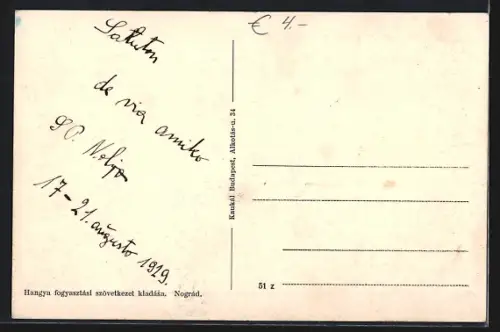 € 4.-
Saluton
de via amiko
17-21. aŭgusto 1929.
Kunkál Budapest, Alkotás-u. 34
Hangya fogyasztási szövetkezet kiadása. Nográd.
51 z